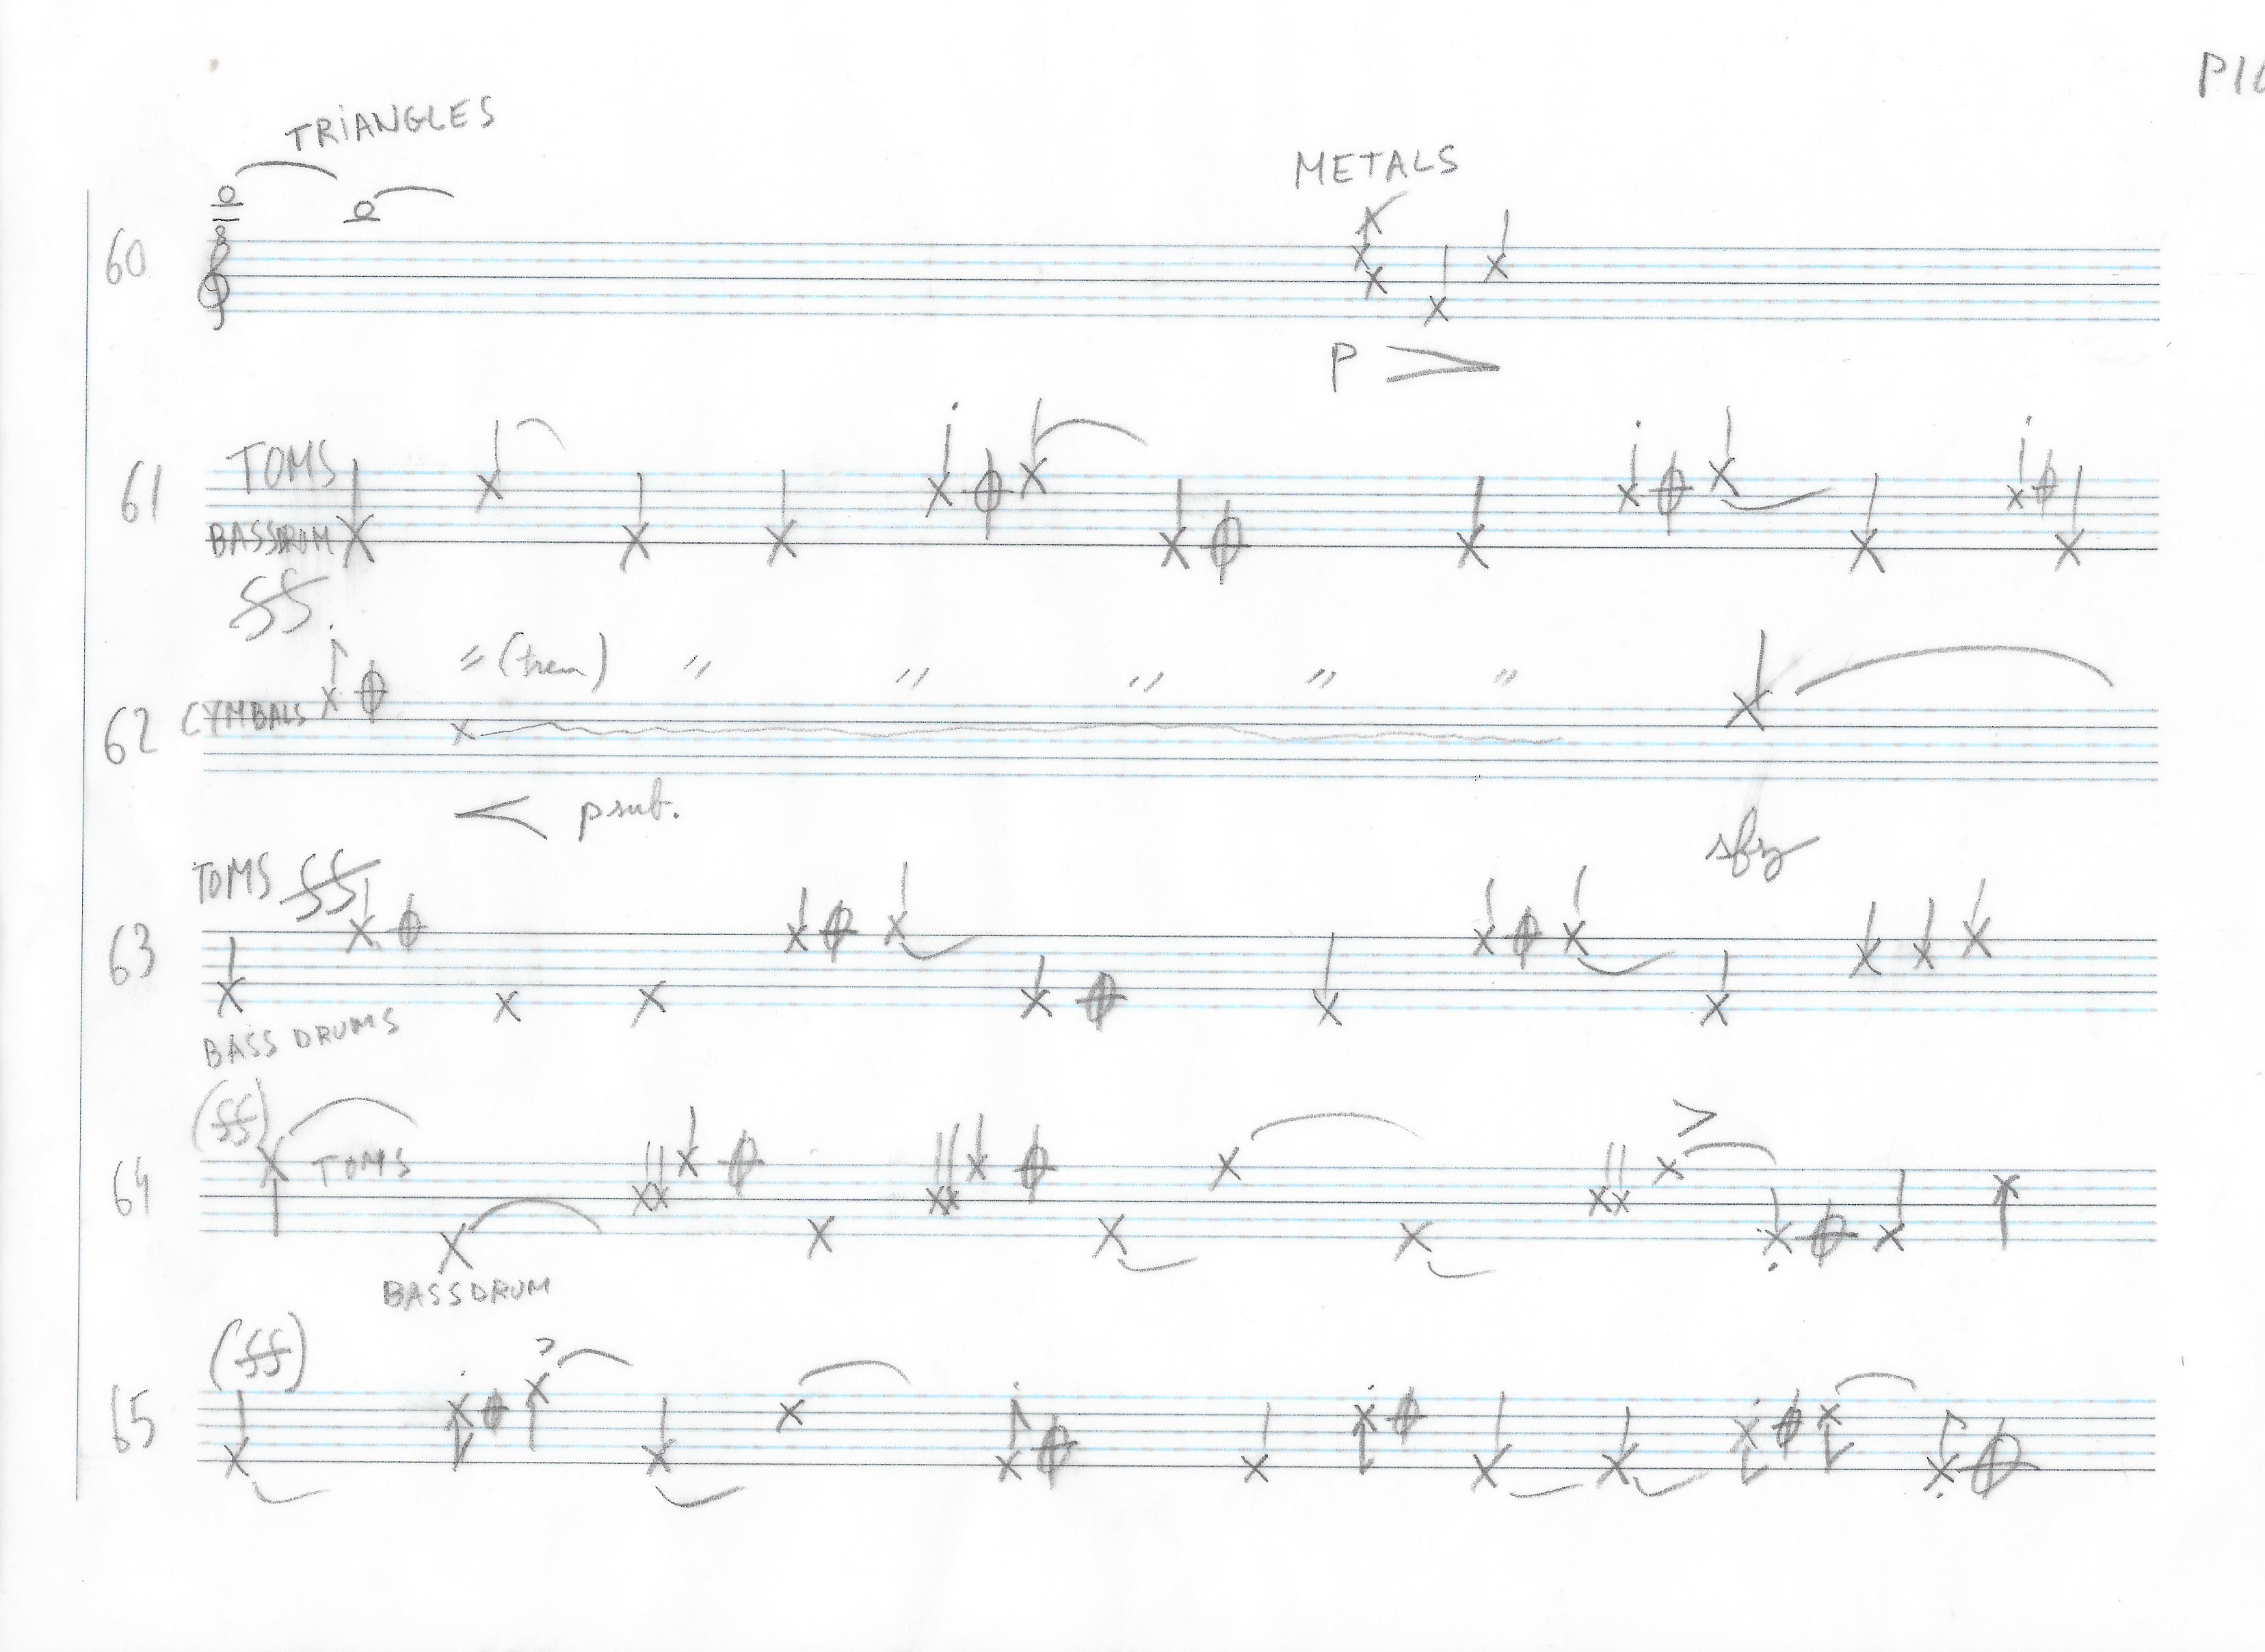 TRIANGLES
METALS
60
P
TOMS
61
BASSDRUM
ff
(trem)
62 CYMBALS
p sub.
sfz
TOMS ff
63
BASS DRUMS
(ff)
64 TOMS
BASSDRUM
(ff)
65